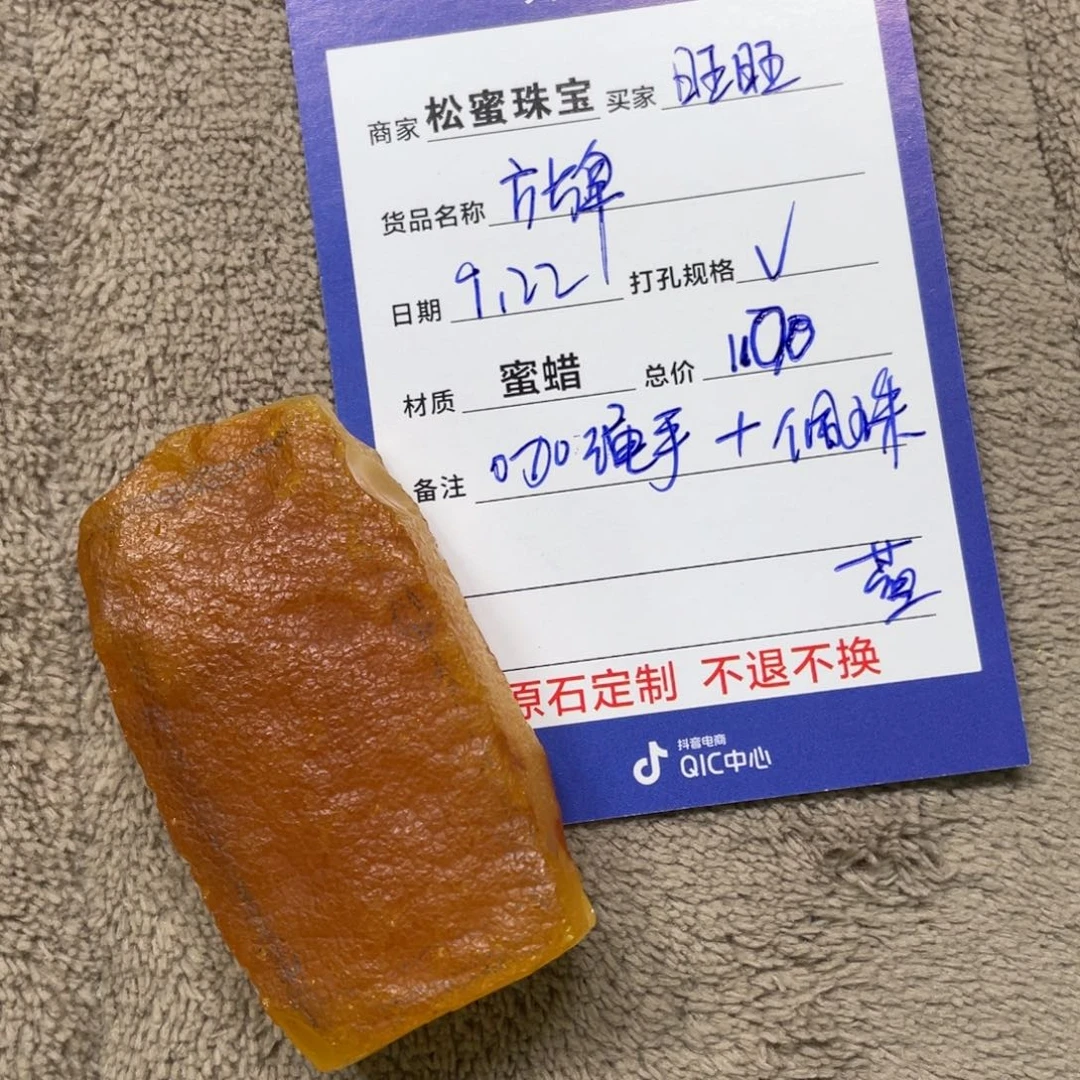 商家 松蜜珠宝 买家 旺旺
货品名称 方牌
日期 9.22 打孔规格 √
材质 蜜蜡 总价
备注 咖绳手+佩珠
原石定制 不退不换
抖音电商
QIC中心